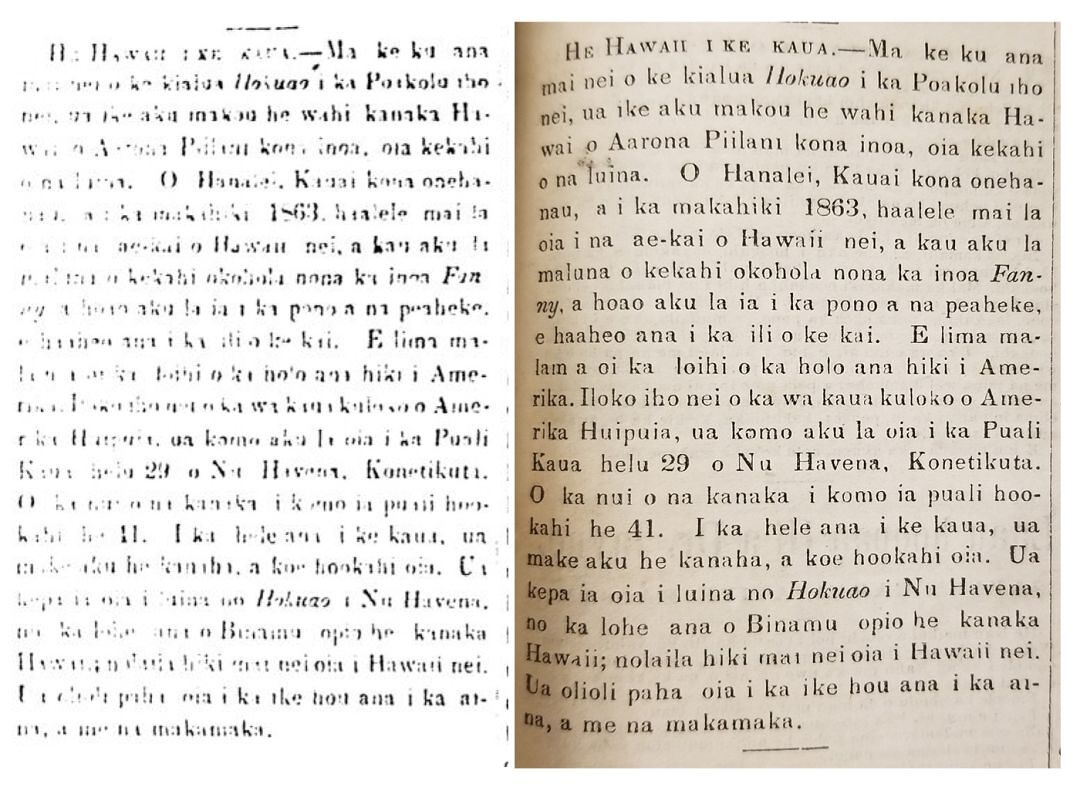 HE HAWAII I KE KAUA.—Ma ke ku ana
nei o ke kialua Hokuao i ka Poakolu iho
nei, ua ike aku makou he wahi kanaka Ha-
wai o Aarona Piilani kona inoa, oia kekahi
o na luina. O Hanalei, Kauai kona oneha-
nau, a i ka makahiki 1863, haalele mai la
ae-kai o Hawaii nei, a kau aku la
o kekahi okohola nona ka inoa Fan-
ny, a hoao aku la ia i ka pono a na peaheke,
e haaheo ana i ka ili o ke kai. E lima ma-
loihi o ka holo ana hiki i Ame-
rika. Iloko iho nei o ka wa kaua kuloko o Ame-
rika Huipuia, ua komo aku la oia i ka Puali
Kaua helu 29 o Nu Havena, Konetikuta.
O ka nui o na kanaka i komo ia puali hoo-
kahi he 41. I ka hele ana i ke kaua, ua
make aku he kanaha, a koe hookahi oia. Ua
kepa ia oia i luina no Hokuao i Nu Havena,
no ka lohe ana o Binamu opio he kanaka
Hawaii; nolaila hiki mai nei oia i Hawaii nei.
Ua olioli paha oia i ka ike hou ana i ka ai-
na, a me na makamaka.
HE HAWAII I KE KAUA.—Ma ke ku ana
mai nei o ke kialua Hokuao i ka Poakolu iho
nei, ua ike aku makou he wahi kanaka Ha-
wai o Aarona Piilani kona inoa, oia kekahi
o na luina. O Hanalei, Kauai kona oneha-
nau, a i ka makahiki 1863, haalele mai la
oia i na ae-kai o Hawaii nei, a kau aku la
maluna o kekahi okohola nona ka inoa Fan-
ny, a hoao aku la ia i ka pono a na peaheke,
e haaheo ana i ka ili o ke kai. E lima ma-
lam a oi ka loihi o ka holo ana hiki i Ame-
rika. Iloko iho nei o ka wa kaua kuloko o Ame-
rika Huipuia, ua komo aku la oia i ka Puali
Kaua helu 29 o Nu Havena, Konetikuta.
O ka nui o na kanaka i komo ia puali hoo-
kahi he 41. I ka hele ana i ke kaua, ua
make aku he kanaha, a koe hookahi oia. Ua
kepa ia oia i luina no Hokuao i Nu Havena,
no ka lohe ana o Binamu opio he kanaka
Hawaii; nolaila hiki mai nei oia i Hawaii nei.
Ua olioli paha oia i ka ike hou ana i ka ai-
na, a me na makamaka.